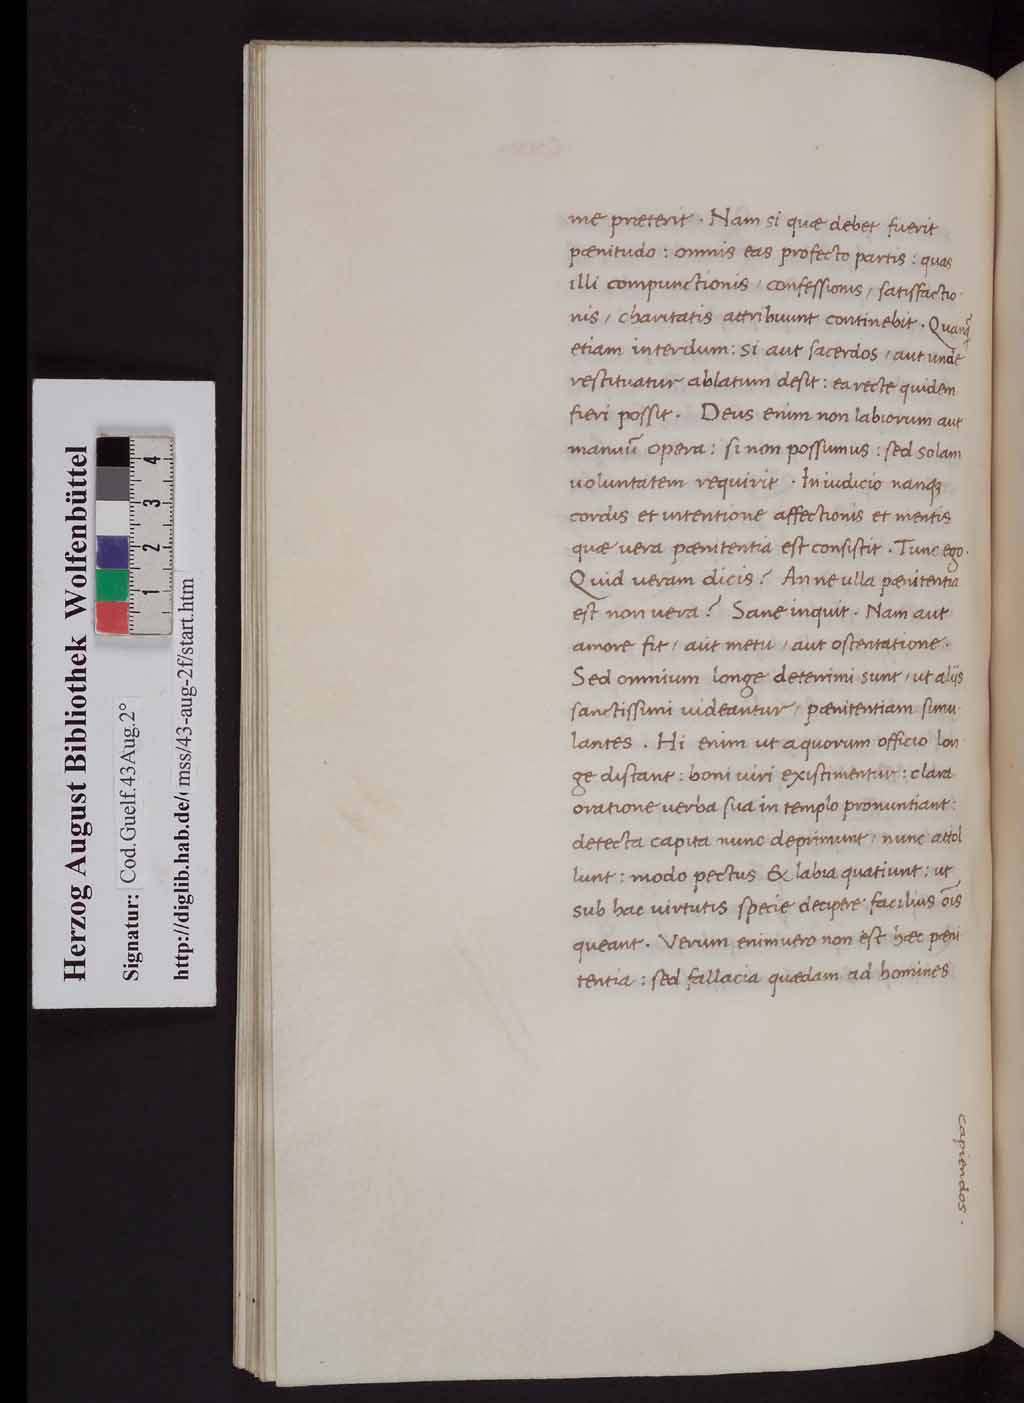 me præterit · Nam si quæ debet fuerit
pænitudo : omnis eas profecto partis : quas
illi compunctionis / confessionis / satisfactio-
nis / charitatis attribuunt continebit . Quanq̃
etiam interdum : si aut sacerdos / aut unde
restituatur ablatum desit : ea recte quidem
fieri possit . Deus enim non labiorum aut
manuũ opera : si non possumus : sed solam
uoluntatem requirit · In iudicio nanq;
cordis et intentione affectionis et mentis
quæ uera pænitentia est consistit . Tunc ego ·
Quid ueram dicis ? An ne ulla pænitentia
est non uera ? Sane inquit . Nam aut
amore fit / aut metu / aut ostentatione .
Sed omnium longe deterrimi sunt / ut alijs
sanctissimi uideantur / pænitentiam simu-
lantes . Hi enim ut a quorum officio lon
ge distant : boni uiri existimentur : clara
oratione uerba sua in templo pronuntiant :
detecta capita nunc deprimunt / nunc attol
lunt : modo pectus & labia quatiunt : ut
sub hac uirtutis specie decipere facilius oĩs
queant . Verum enimuero non est hæc pæni
tentia : sed fallacia quædam ad homines
capiendos .
Herzog August Bibliothek Wolfenbüttel
Signatur: Cod.Guelf.43Aug.2°
http://diglib.hab.de/ mss/43-aug-2f/start.htm
1 2 3 4